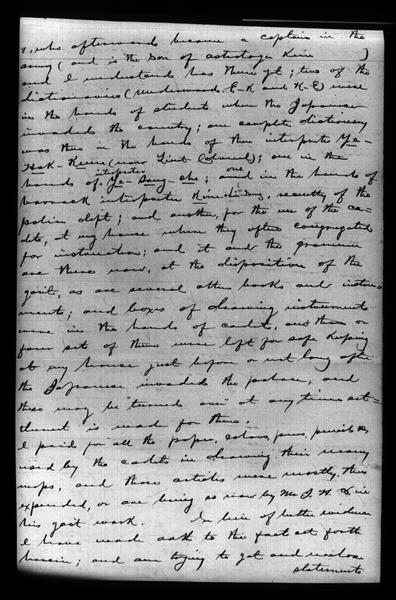 , who afterwards became a captain in the
army (and is the son of astrologer Kim )
and I understand has them yet; two of the
dictionaries (Underwoods E-K and K-E) were
in the hands of student when the Japanese
invaded the country; one complete dictionary
was then in the hands of then interpreter Ye-
Hak-Kuin (now Lieut Colonel); one in the
hands of interpreter Ye- che; and one in the hands of
barrack interpreter Kim , secretly of the
police dept; and another, for the use of the ca-
dets, at my house where they often congregated
for instruction; and it and the grammar
are there now, at the disposition of the
govt, as are several other books and instru-
ments; and boxes of drawing instruments
were in the hands of cadets, and three or
four set of them were left for safe keeping
at my house just before or not long after
the Japanese invaded the palace, and
these may be "turned over" at any time set-
tlement is made for them.
I paid for all the paper, colors, pens, pencils &c
used by the cadets in drawing their many
maps, and those articles were mostly thus
expended, or are being so now by Mr J. H. D. in
his govt work. In lieu of better evidence
I have made oath to the fact set forth
herein; and am trying to get and enclose
statements